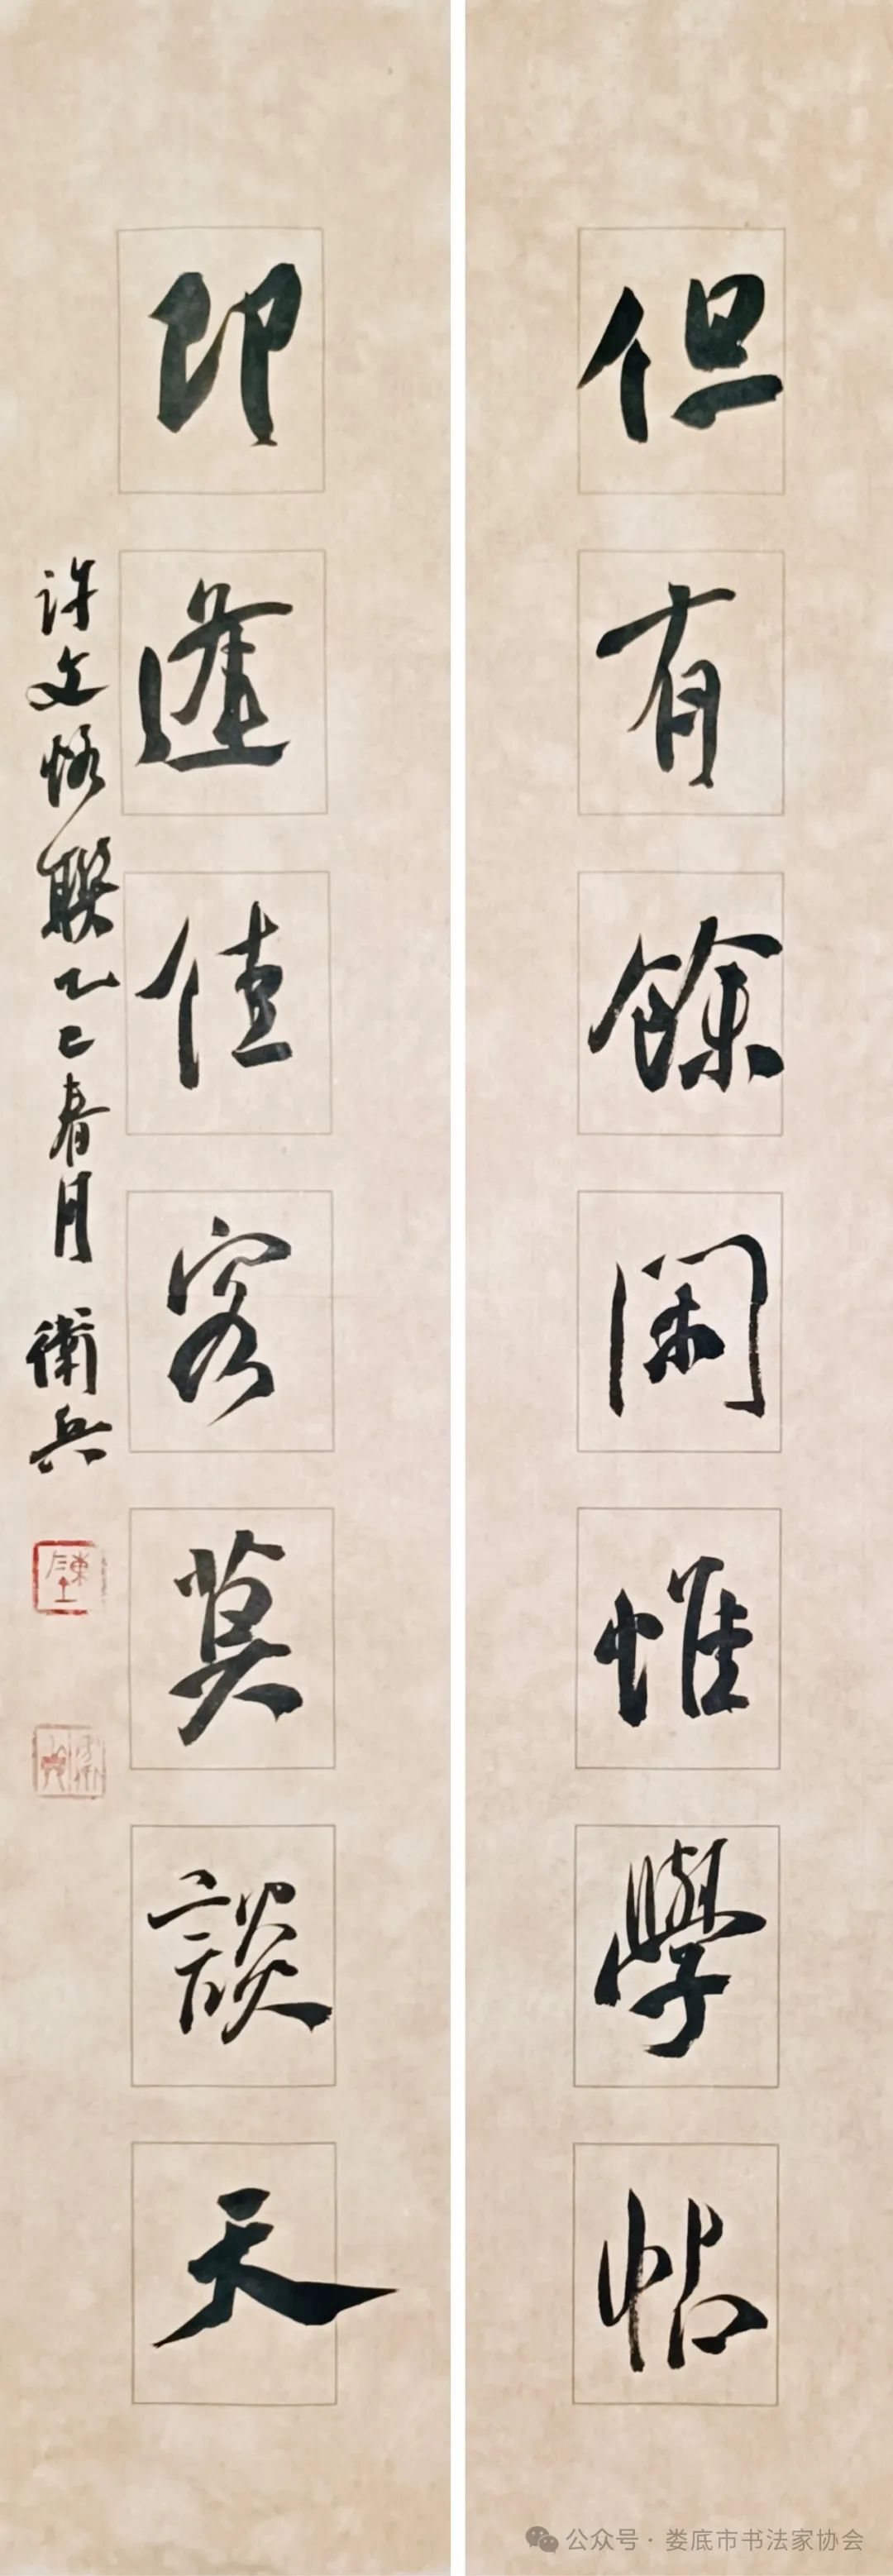 但有餘閑惟學帖
即逢佳客莫談天
許文恪聯乙巳春月 衛兵
公众号·娄底市书法家协会